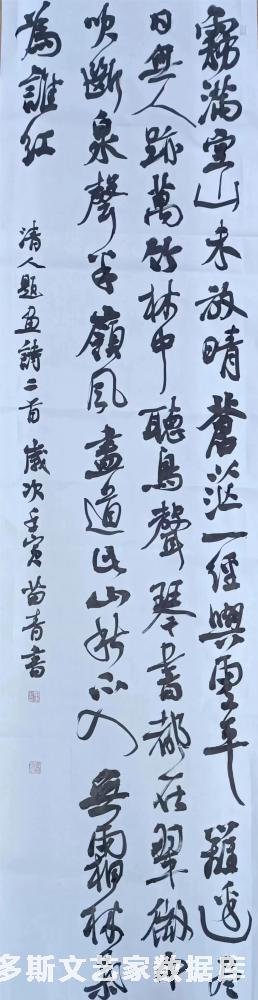 霧滿空山未放晴蒼茫一徑與雲平籬邊
日無人跡萬竹林中聽鳥聲琴書都在翠微
吹斷泉聲半嶺風盡道此山秋不入無霜林
為誰紅
清人題畫詩二首 歲次壬寅 苗青書
多斯文艺家数据库